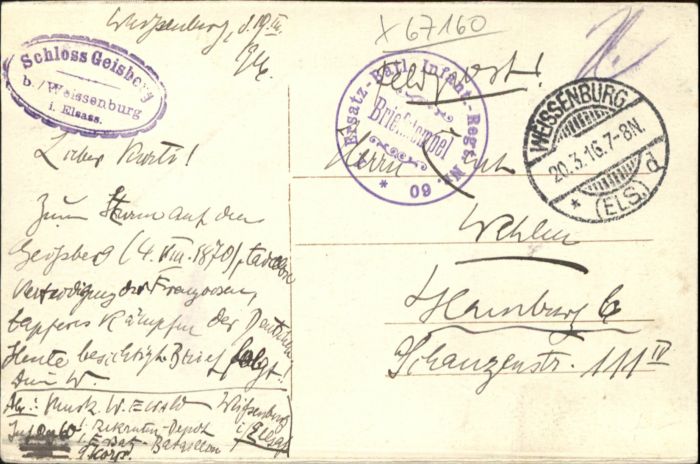 X 67160
Weißenburg, d. 19. III.
16.
Schloss Geisberg
b./Weissenburg
i. Elsass.
Feldpost!
Ersatz-Batl. Infant.-Regt. Nr. 60 *
Briefstempel
WEISSENBURG
20.3.16.7-8N.
* (ELS.) d
Lieber Kurt!
Zum Sturm auf den
Geisberg (4. VIII. 1870), 
Verteidigung der Franzosen,
tapferes Kämpfen der Deutschen
Heute besichtigt. Brief folgt!
Dein W.
Herrn Kurt
Wehlen
Hamburg 6
Schanzenstr. 111 IV
Abs.: Musk. W. Ewald Weißenburg
i/Elsaß
Rekruten-Depot
1. Ersatz-Bataillon